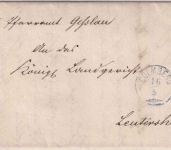 Pfarramt Geßlau
An das
Königl Landgericht
Leutersh
16
5